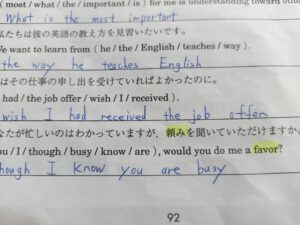 ( most / what / the / important / is ) for me is understanding toward other
What is the most important
私たちは彼の英語の教え方を見習いたいです。
We want to learn from ( he / the / English / teaches / way ).
the way he teaches English
はその仕事の申し出を受けていればよかったのに。
had / the job offer / wish / I / received ).
wish I had received the job offer
なたが忙しいのはわかっていますが、頼みを聞いていただけますか
ou / I / though / busy / know / are ), would you do me a favor?
hough I know you are busy
92